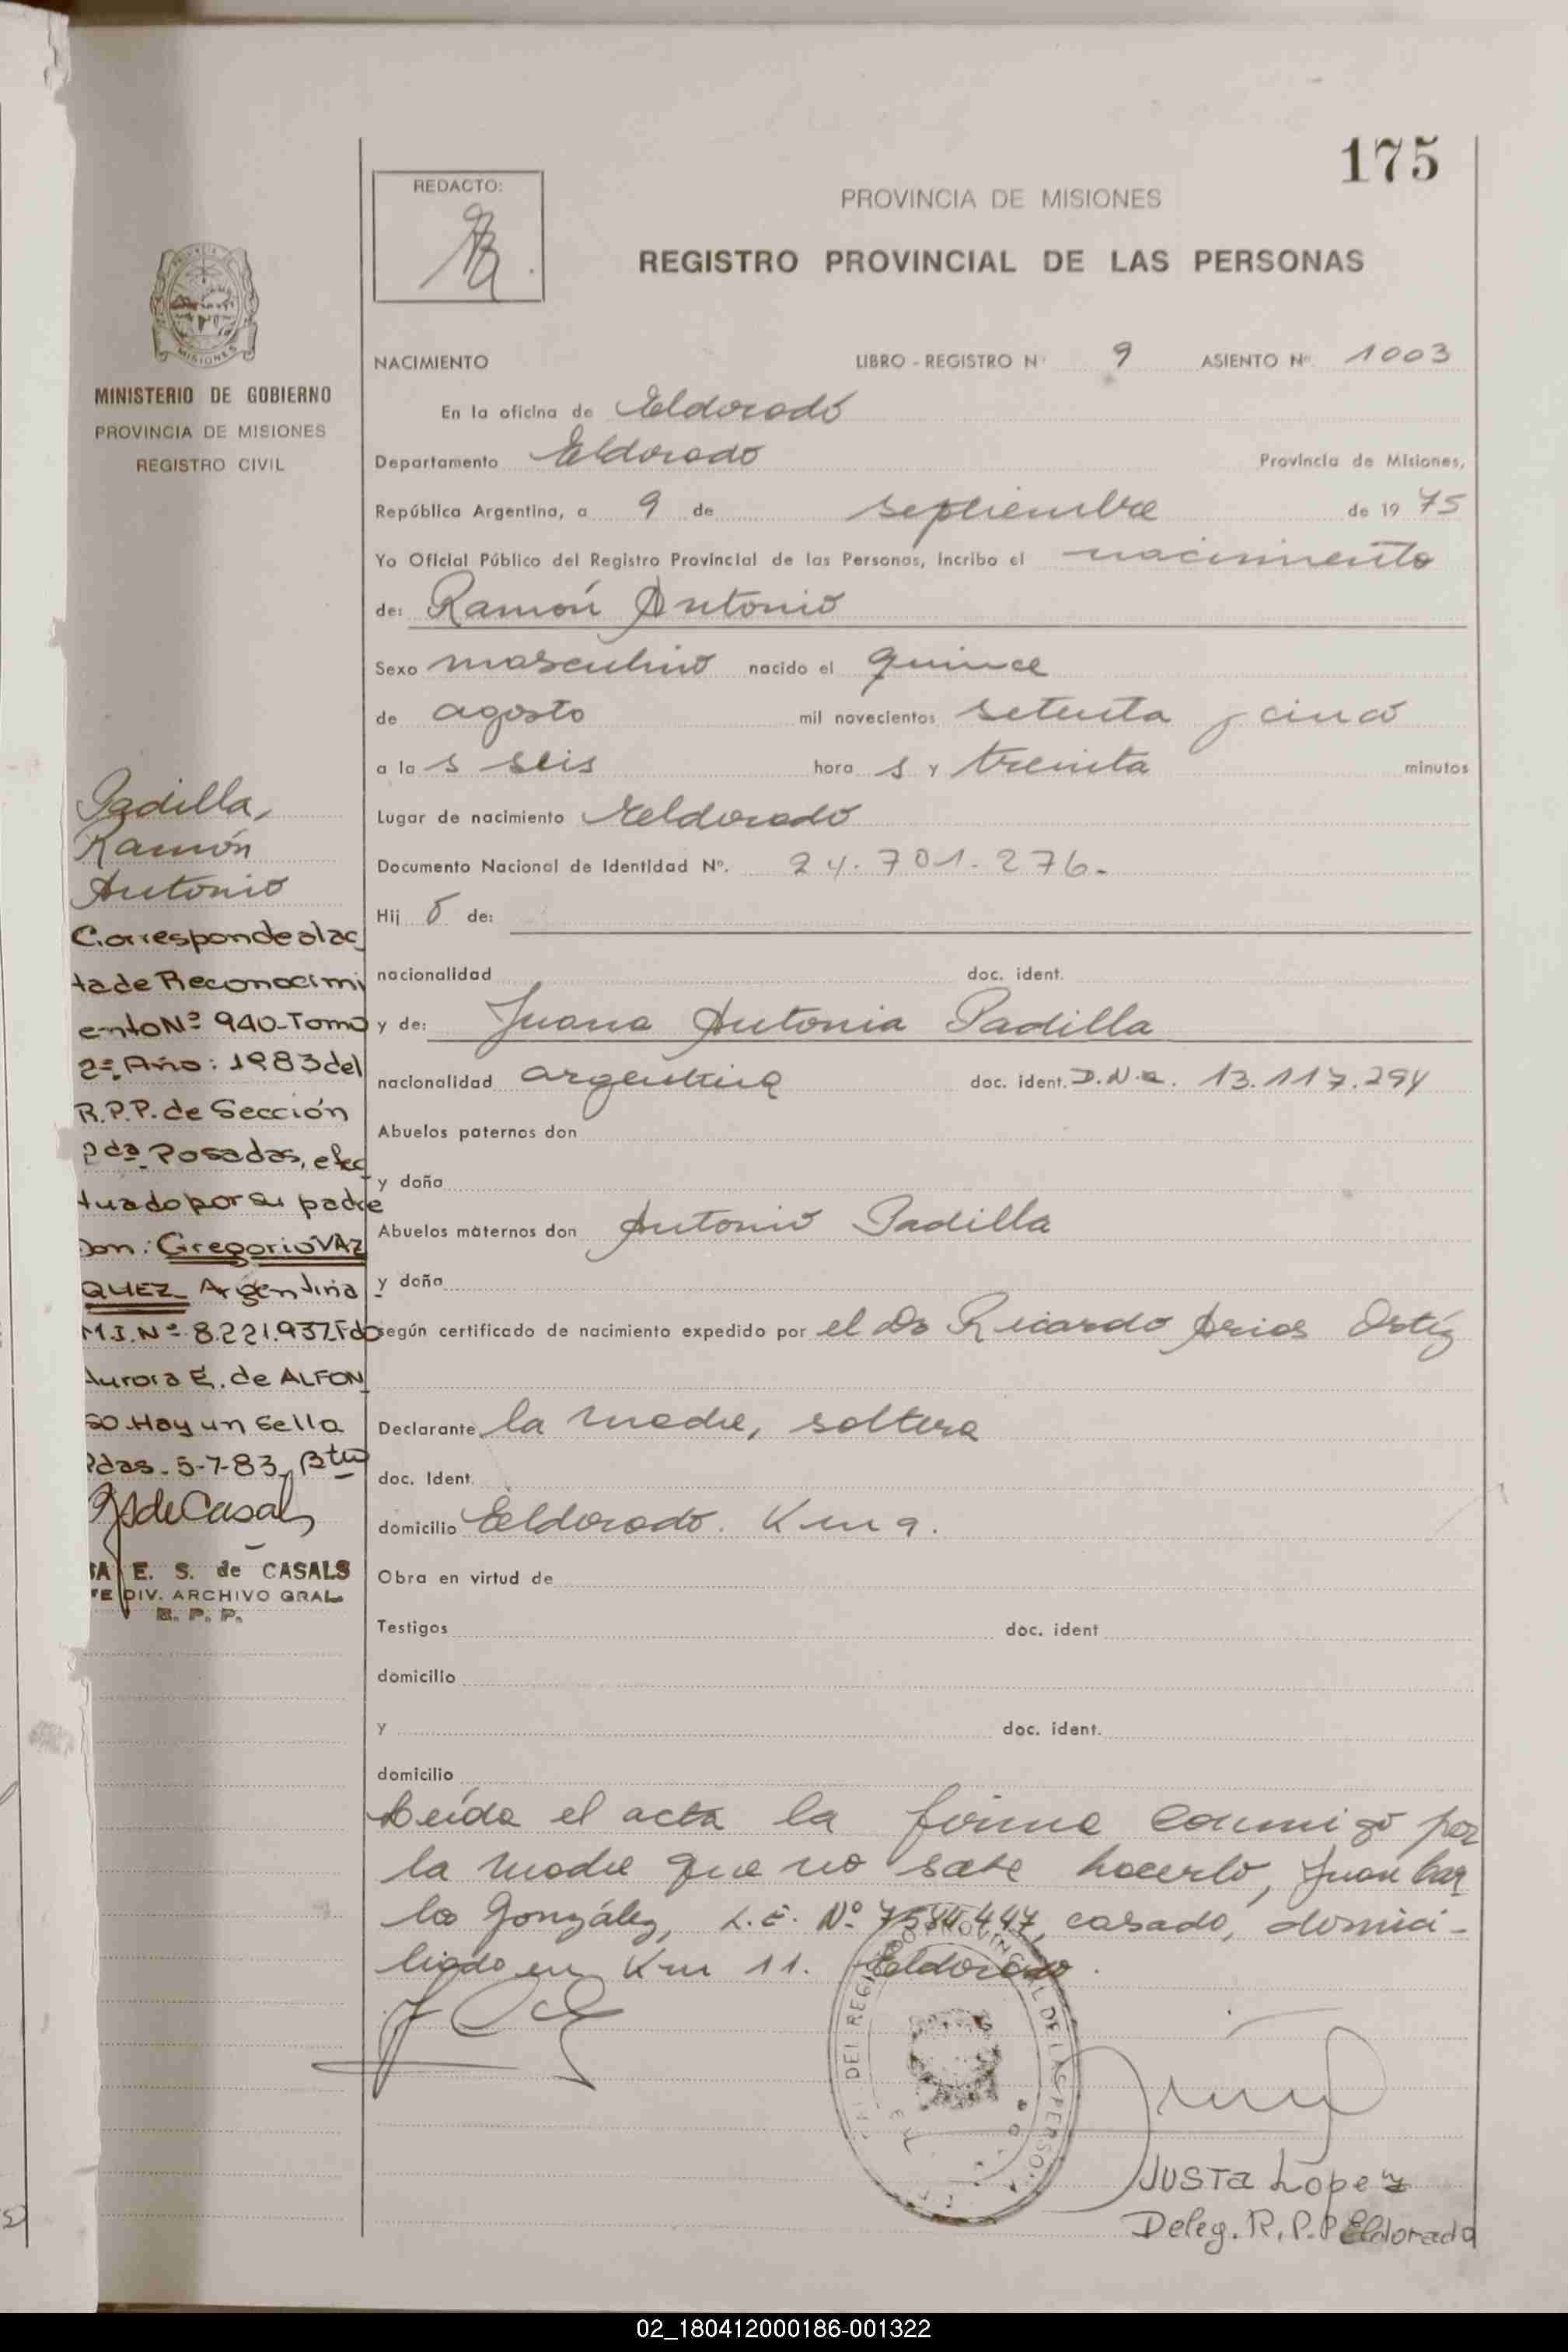 175
REDACTO:
PROVINCIA DE MISIONES
REGISTRO PROVINCIAL DE LAS PERSONAS
MISIONES
MINISTERIO DE GOBIERNO
PROVINCIA DE MISIONES
REGISTRO CIVIL
NACIMIENTO LIBRO - REGISTRO Nº 9 ASIENTO Nº 1003
En la oficina de Eldorado
Departamento Eldorado Provincia de Misiones,
República Argentina, a 9 de septiembre de 19 75
Yo Oficial Público del Registro Provincial de las Personas, incribo el nacimiento
de: Ramón Antonio
Sexo masculino nacido el quince
de agosto mil novecientos setenta y cinco
a la s seis hora s y treinta minutos
Lugar de nacimiento Eldorado
Documento Nacional de Identidad Nº. 24.701.276.-
Hij o de:
nacionalidad doc. ident.
y de: Juana Antonia Padilla
nacionalidad argentina doc. ident. D.N.I. 13.117.294
Abuelos paternos don
y doña
Abuelos maternos don Antonio Padilla
y doña
según certificado de nacimiento expedido por el Dr Ricardo Arios Ortíz
Declarante la madre, soltera
doc. Ident.
domicilio Eldorado. Km 9.
Obra en virtud de
Testigos doc. ident
domicilio
y doc. ident.
domicilio
Leída el acta la firma conmigo por
la madre que no sabe hacerlo, Juan Car
los González, L.E. Nº 7584447, casado, domici-
liado en Km 11. Eldorado.
Padilla,
Ramón
Antonio
Corresponde al ac
ta de Reconocimi
ento Nº 940-Tomo
2º. Año: 1983 del
R.P.P. de Sección
2da. Posadas, efec
tuado por su padre
Don: Gregorio VAZ
QUEZ Argentina
M.I. Nº 8.221.937. Fdo
Aurora E. de ALFON
SO. Hay un Sello
Pdas. 5-7-83
de Casals
E. S. de CASALS
DIV. ARCHIVO GRAL
R. P. P.
DEL REGISTRO PROVINCIAL DE LAS PERSONAS
Justa Lopez
Deleg. R.P.P Eldorado
02_180412000186-001322